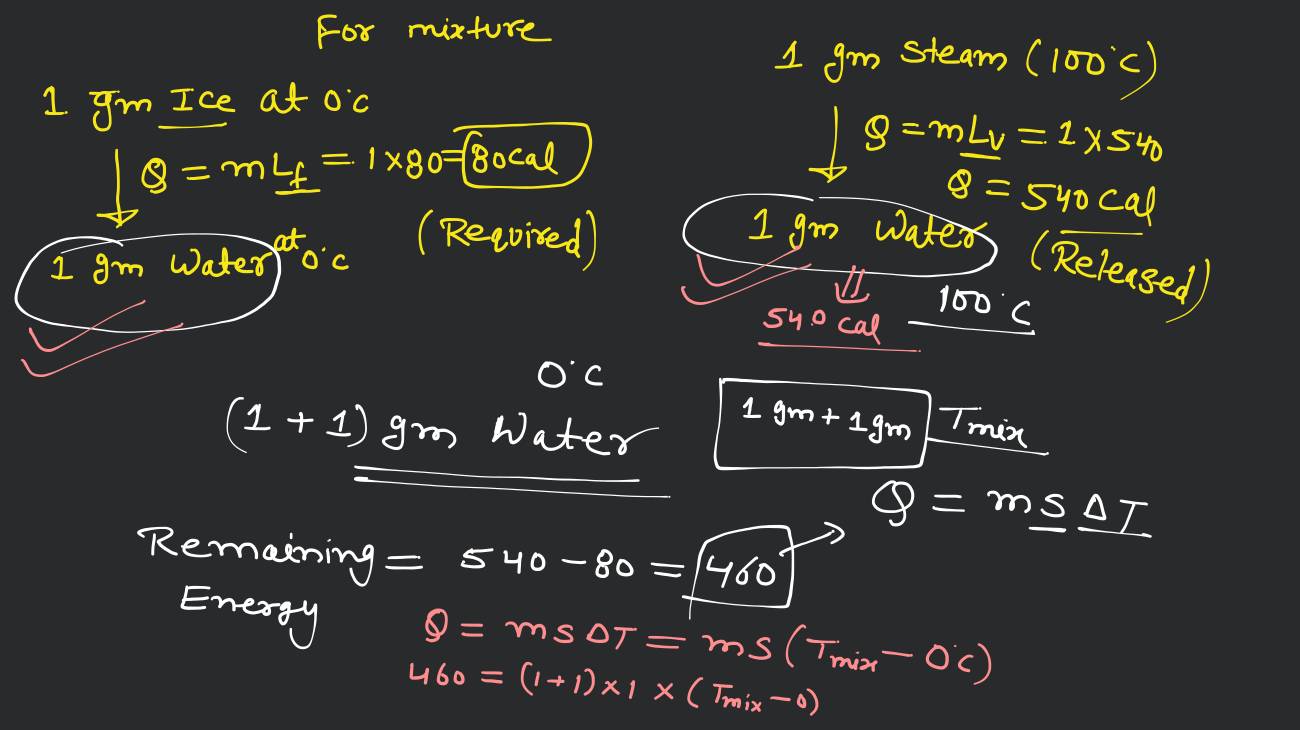 For mixture
1 gm Ice at 0°C
Q = mLf = 1 × 80 = 80 cal
(Required)
1 gm Water at 0°C
1 gm Steam (100°C)
Q = mLv = 1 × 540
Q = 540 Cal
(Released)
1 gm Water
100°C
540 cal
0°C
(1 + 1) gm Water
1 gm + 1 gm Tmix
Q = m S ΔT
Remaining Energy = 540 – 80 = 460
Q = m s ΔT = m s (Tmix – 0°C)
460 = (1+1) × 1 × (Tmix – 0)